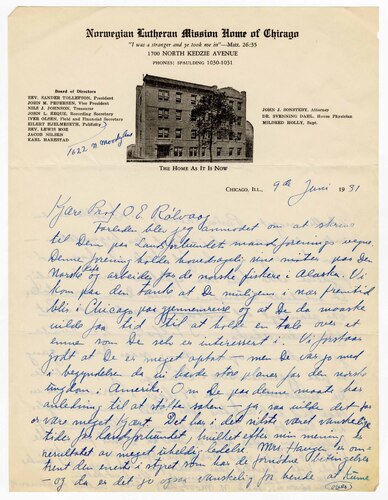 Norwegian Lutheran Mission Home of Chicago
"I was a stranger and ye took me in"—Matt. 26:35
1700 NORTH KEDZIE AVENUE
PHONES: SPAULDING 1030-1031
Board of Directors
REV. SANDER TOLLEFSON, President
JOHN M. PEDERSEN, Vice President
NILS J. JOHNSON, Treasurer
JOHN L. EEQUE, Recording Secretary
IVER OLSEN, Field and Financial Secretary
EILERT HJELMSETH, Publicity
REV. LEWIS MOE
JACOB NILSEN
KARL MARSTAD
1622 N.
JOHN J. SONSTEBY, Attorney
DR. SVENNING DAHL, House Physician
MILDRED HOLLY, Supt.
THE HOME AS IT IS NOW
CHICAGO, ILL., 9de Juni 1931
Kjære Prof O E Rölvaag
Forleden blev jeg anmodet om at skrive
til Dem paa Landsforbundet mandsforenings vegne.
Denne forening holder hovedsagelig sine möter paa den
Norske
og arbeider for de norske fiskere i Alaska. Vi
kom paa den tanke at De muligens i nær fremtid
blir i Chicago paa gjennemreise og at De da maaske
vilde faa tid til at holde en tale over et
emne som De selv er interessert i. Vi forstaar
godt at De er meget optat — men De var jo med
i begyndelsen da vi hadde store planer for den norske
ungdom i Amerika. Om De paa denne maate har
anledning til at stötte saken — ja, saa vilde det
være meget kjært. Det har i det sidste været vanskelige
tider for Landsforbundet, hvilket efter min mening er
resultatet av meget uheldig ledelse. Mrs. Hauge er om-
trent den eneste i styret som har de fornödne betingelser
— og da er det jo ogsaa vanskelig for hende at kunne
(over)